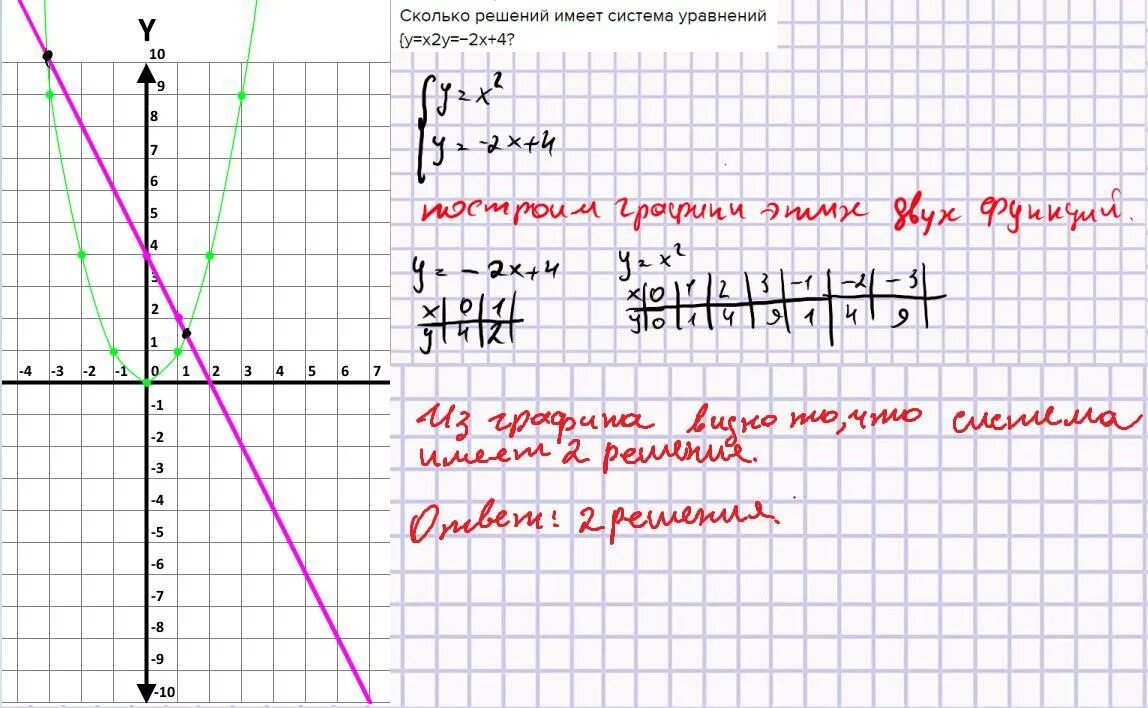 Сколько решений имеет система уравнений
{y=x2y=−2x+4?
y = x²
y = -2x+4
построим графики этих двух функций.
y = - 2x+4
x 0 1
y 4 2
y = x²
x 0 1 2 3 -1 -2 -3
y 0 1 4 9 1 4 9
Из графика видно то, что система
имеет 2 решения.
Ответ: 2 решения.
Y
10
9
8
7
6
5
4
3
2
1
-4 -3 -2 -1 0 1 2 3 4 5 6 7
-1
-2
-3
-4
-5
-6
-7
-8
-9
-10